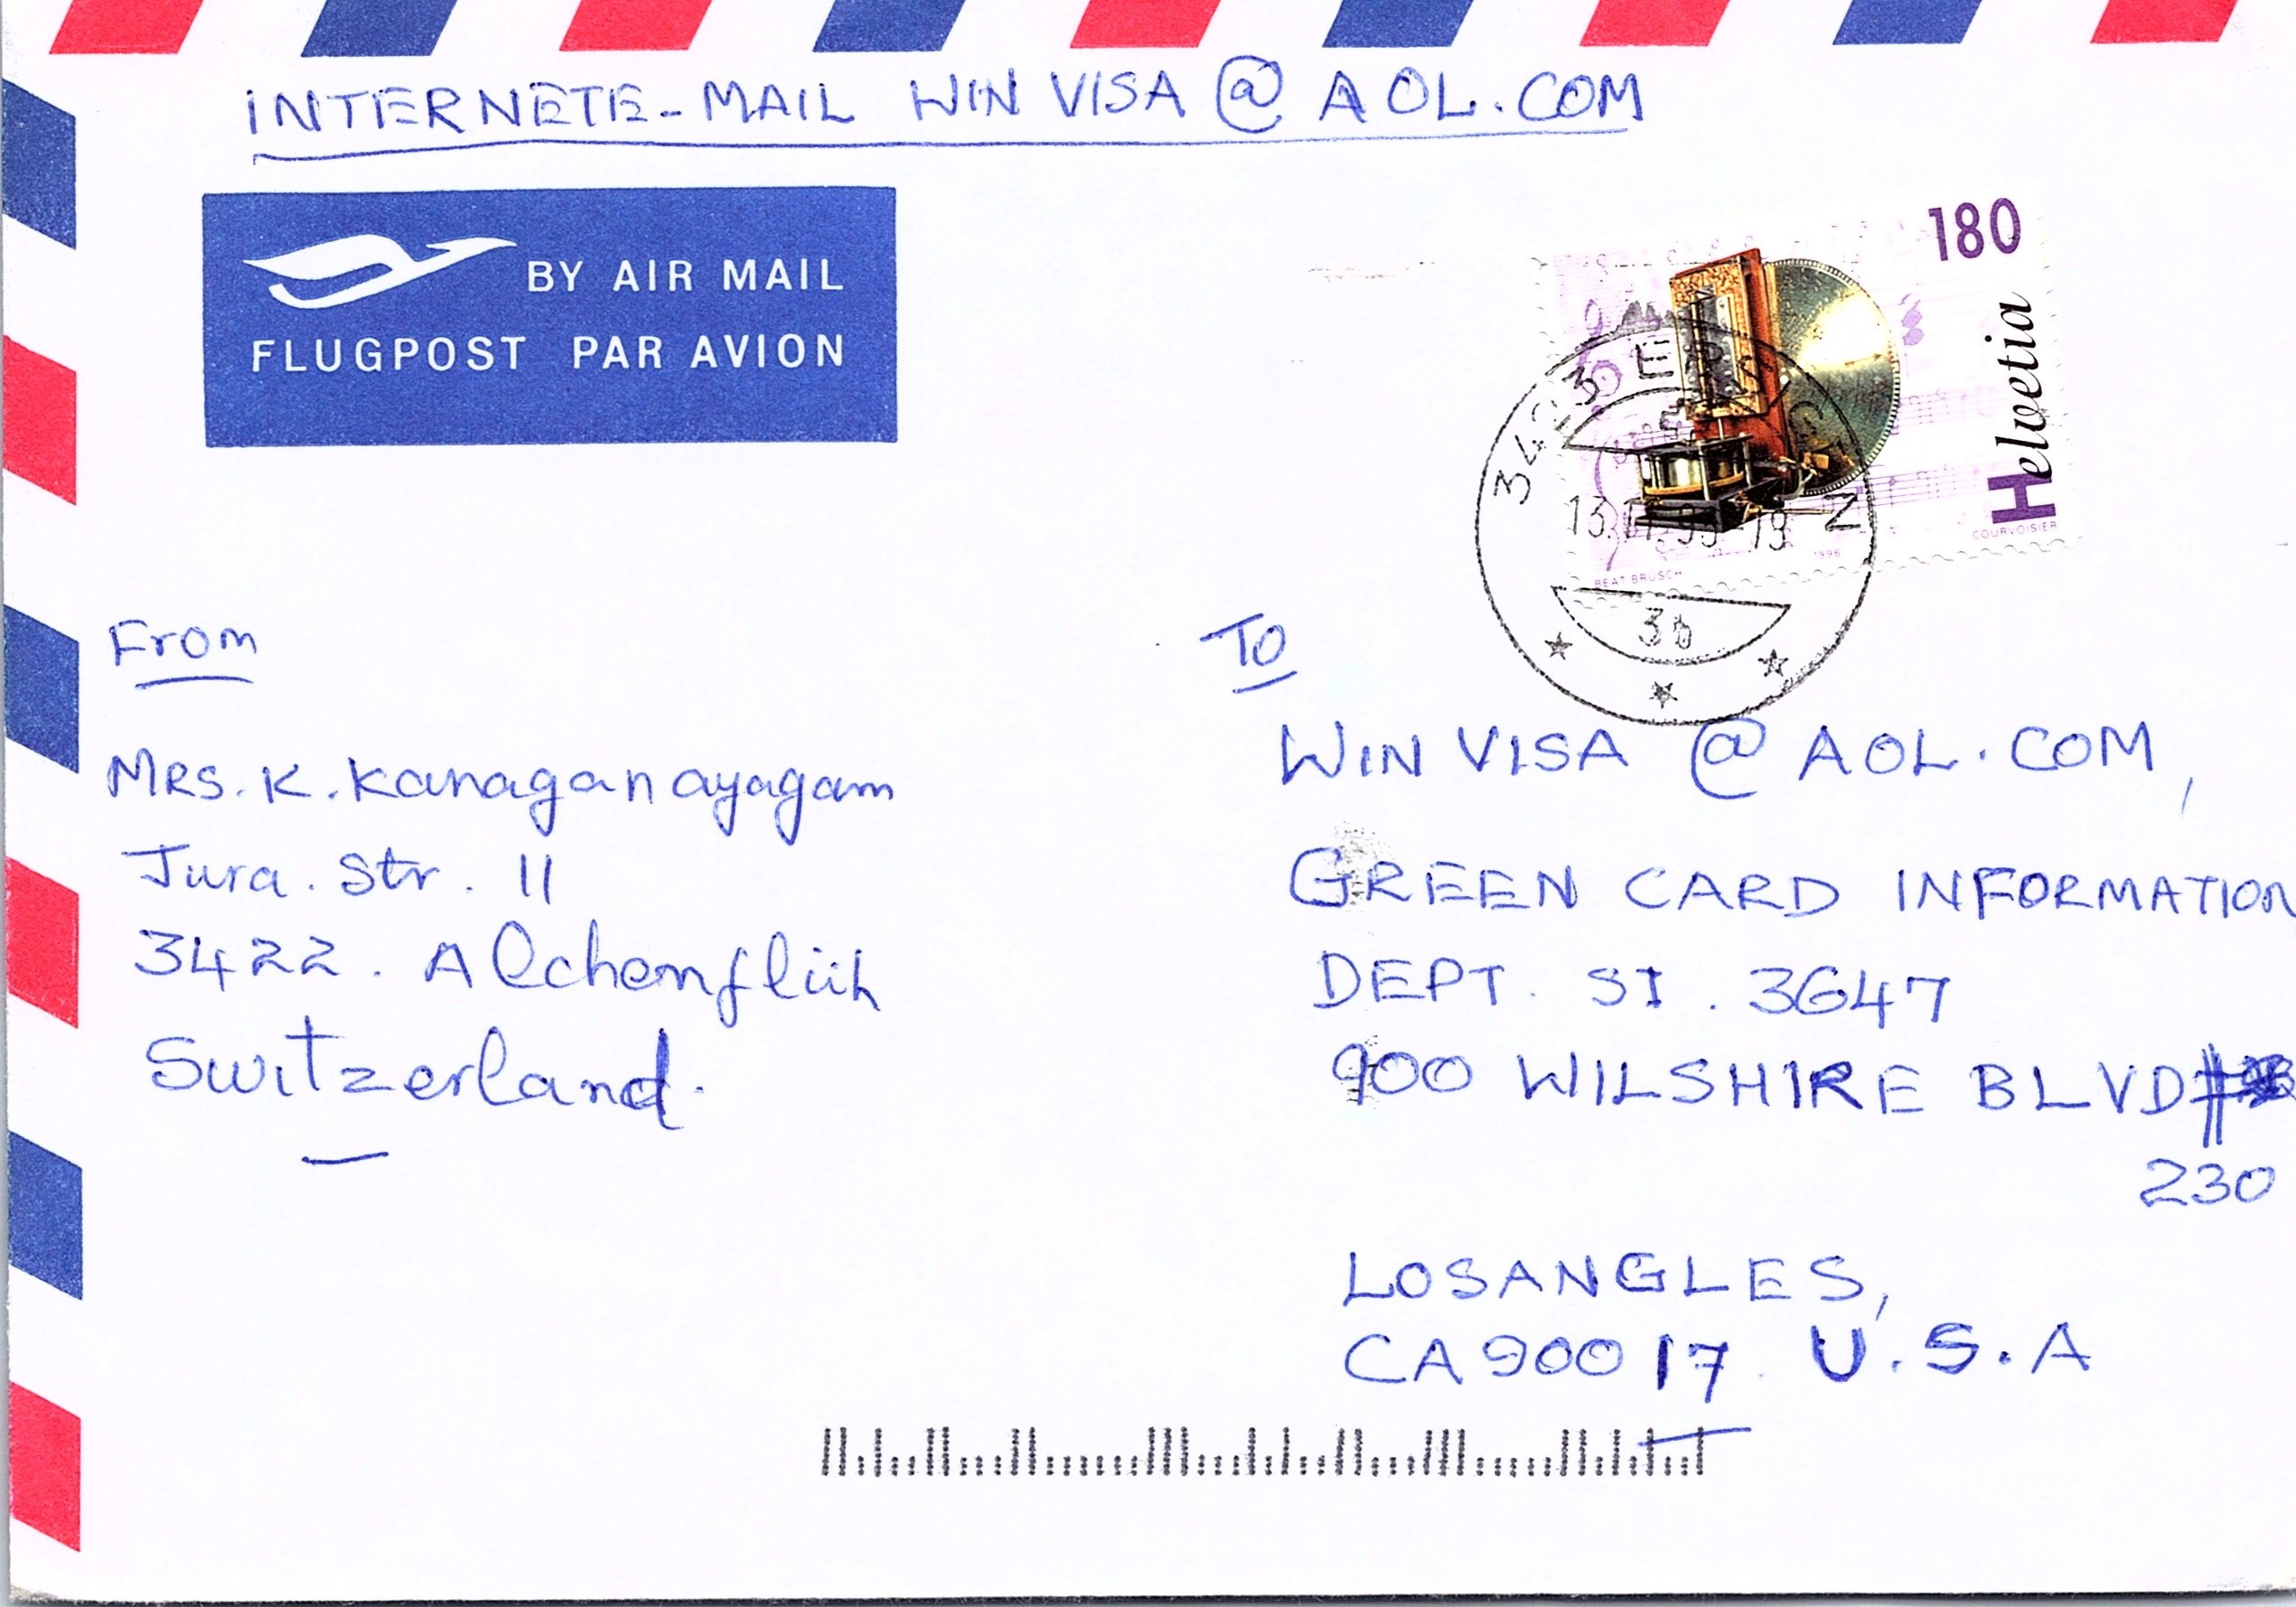 INTERNETE-MAIL WIN VISA @ AOL.COM
BY AIR MAIL
FLUGPOST PAR AVION
180
Helvetia
COURVOISIER
1996
BEAT BRUSCH
3423 ERSIGEN
13. 19
3b
From
Mrs. K. Kanaganayagam
Jura. Str. 11
3422. Alchenflüh
Switzerland.
To
WIN VISA @ AOL.COM,
GREEN CARD INFORMATION
DEPT. SI. 3647
900 WILSHIRE BLVD #
230
LOSANGLES,
CA 90017. U.S.A